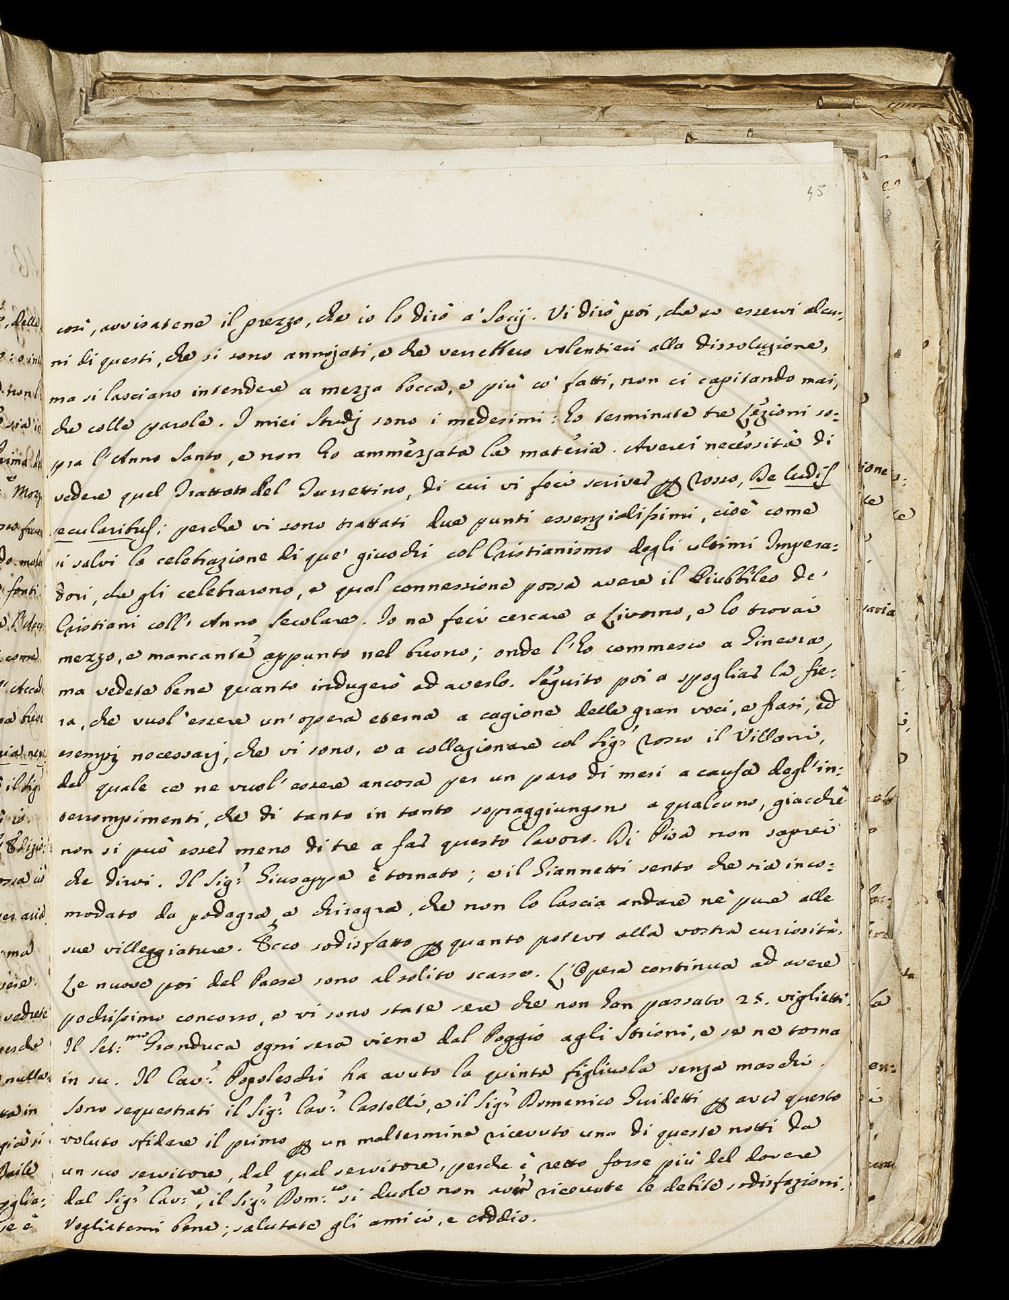 45
così, avvisatene il prezzo, che io lo dirò a' Socij. Vi dirò poi, che so esservi alcu-
ni di questi, che si sono annojati, e che verrebbero volentieri alla dissoluzione,
ma si lasciano intendere a mezza bocca, e più co' fatti, non ci capitando mai,
che colle parole. I miei Studj sono i medesimi: Ho terminate tre Lezioni so-
pra l'Anno Santo, e non ho ammezzata la materia. Averei necessità di
vedere quel Trattato del Turrettino, di cui vi feci scriver Rosso, De Ludis
secularibus; perche vi sono trattati due punti essenzialissimi, cioè come
si salvi la celebrazione di que' giuochi col Cristianismo degli ultimi Impera-
dori, che gli celebrarono, e qual connessione possa avere il Giubbileo de'
Cristiani coll' Anno Secolare. Io ne feci cercare a Livorno, e lo trovai
mezzo, e mancante appunto nel buono; onde l'ho commesso a Ginevra,
ma vedete bene quanto indugerò ad averlo. Seguito poi a spogliar la Fie-
ra, che vuol' essere un' opera eterna a cagione delle gran voci, e frasi, ed
esempj necessarj, che vi sono, e a collazionare col Sig.r Rosso il Villani,
del quale ce ne vuol' essere ancora per un paro di mesi a causa degl' in-
terrompimenti, che di tanto in tanto sopraggiungono a qualcuno, giacchè
non si può esser meno di tre a far questo lavoro. Di Pisa non saprei
che dirvi. Il Sig.r Giuseppe è tornato; e il Giannetti sento che sia inco-
modato da podagra, e chiragra, che non lo lascia andare nè pure alle
sue villeggiature. Ecco sodisfatto quanto potevo alla vostra curiosità.
Le nuove poi del Paese sono al solito scarse. L'Opera continua ad avere
pochissimo concorso, e vi sono state sere che non han passato 25. viglietti.
Il Ser.mo Granduca ogni sera viene dal Poggio agli Strioni, e se ne torna
in su. Il Cav.r Popoleschi ha avuto la quinta figliuola senza maschi.
Sono sequestrati il Sig.r Cav.r Castelli, e il Sig.r Domenico Guidetti aver questo
voluto sfidare il primo un maltermine ricevuto una di queste notti da
un suo servitore, dal qual servitore, perche è retto forse più del dovere
dal Sig.r Cav.re, il Sig.r Dom.co si duole non aver ricevute le debite sodisfazioni.
Vogliatemi bene; salutate gli amici, e addio.